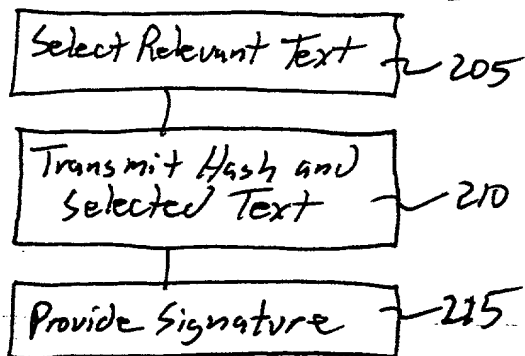 Select Relevant Text
205
Transmit Hash and
Selected Text
210
Provide Signature
215